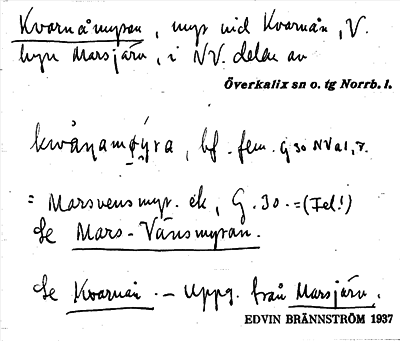 Kvarnåmyran, myr vid Kvarnån, V.
byn Marsjärv, i NV. delen av
Överkalix sn o. tg Norrb. l.
kwåṇamǿýra, bf. fem. G 30 NV a 1, 7.
= Marsvensmyr. ek, G. 30. = (Fel!)
Se Mars-Vänsmyran.
Se Kvarnån. — Uppg. från Marsjärv.
EDVIN BRÄNNSTRÖM 1937